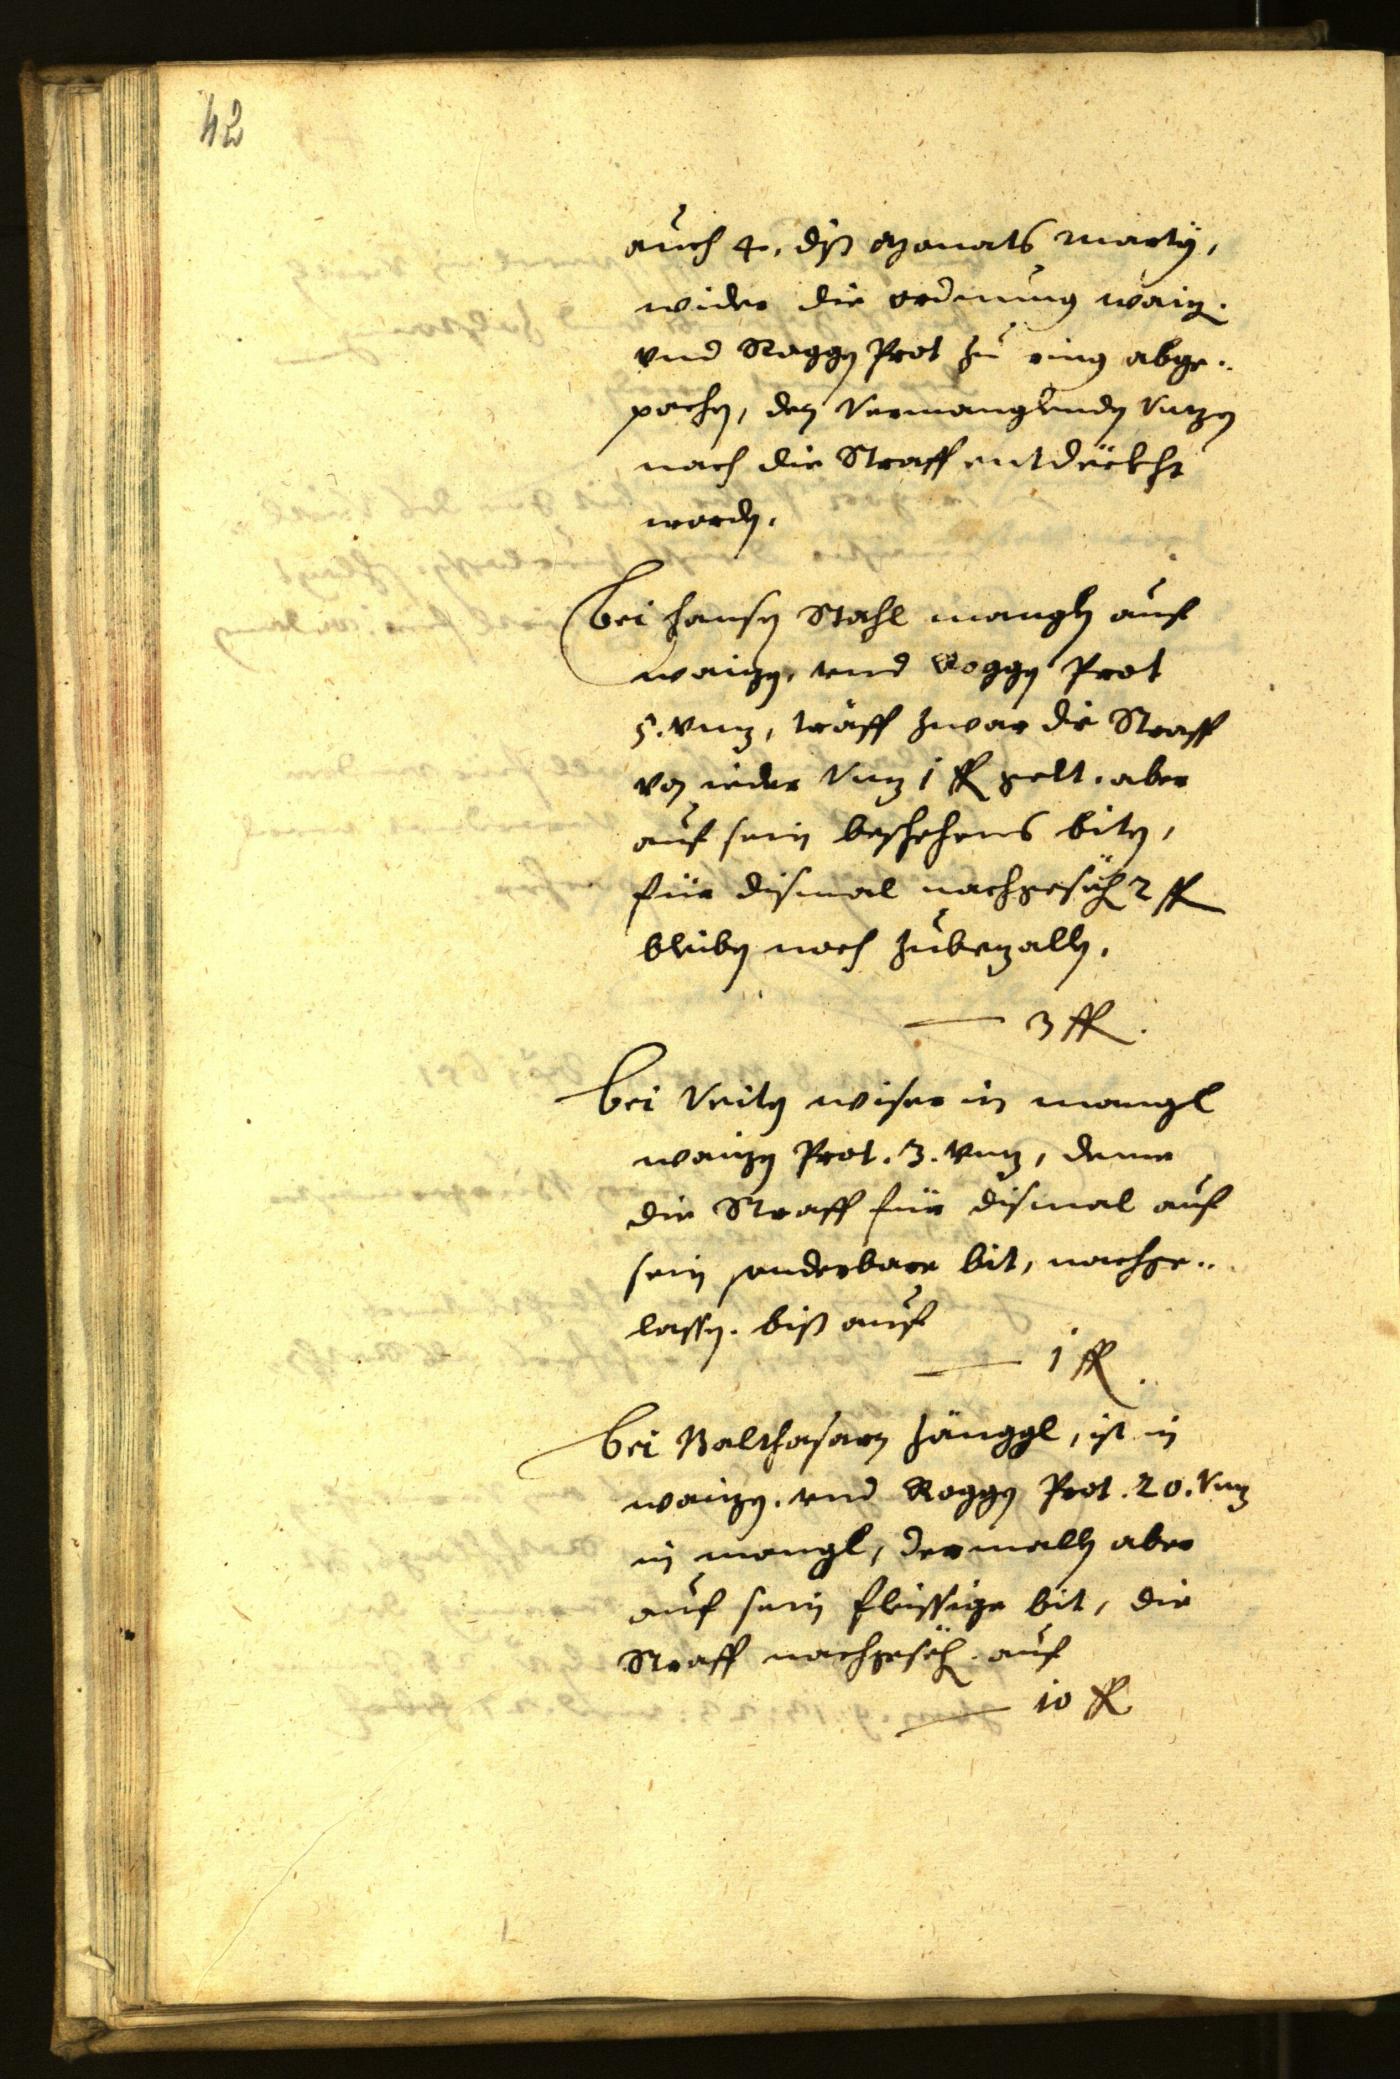 42
auch 4. diß Monats Marty,
wider die ordnung waiz.
vnd Roggen Prot zu ring abge..
pachen, den Vermanglenden Vnzen
nach die Straff entdeckht
worden.
Bei Hansen Stahl manglen auf
waizen. vnd Roggen Prot
5. vnz, träff zwar die Straff
von ieder Vnz 1 fl gelt. aber
auf sein beschehens biten,
für dismal nachgesëhen 2 fl
bleiben noch zubezallen.
3 fl.
Bei Veiten wiser in mangl
waizen Prot. 3. vnz, deme
die Straff für dismal auf
sein sonderbare bit, nachge..
lassen. biß auf
1 fl.
Bei Balthasarn Hänggl, ist in
waizen. vnd Roggen Prot. 20. Vnz
in mangl, dermallen aber
auf sein fleissige bit, die
Straff nachgesëhen. auf
10 fl